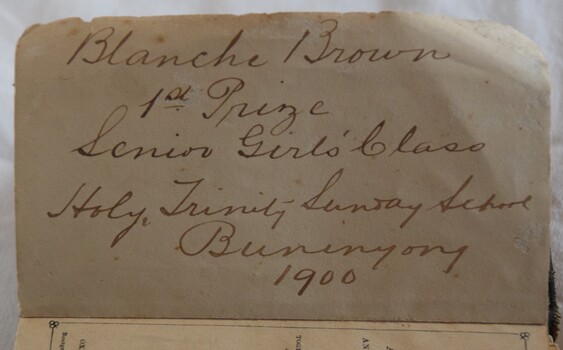 Blanche Brown
1st Prize
Senior Girls' Class
Holy Trinity Sunday School
Buninyong
1900